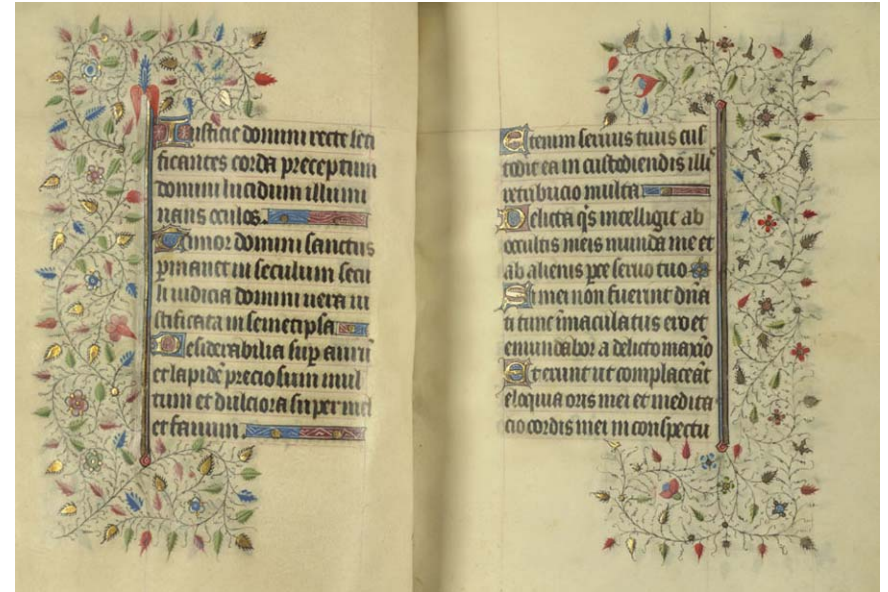 Iusticie domini recte leti
ficantes corda preceptum
domini lucidum illumi
nans oculos.
Timor domini sanctus
p̄manet in seculum secu
li iudicia domini uera iu
stificata in semetipsa
Desiderabilia sup̄ aurū
et lapidē preciosum mul
tum et dulciora super mel
et fauum.
Etenim seruus tuus cus
todit ea in custodiendis illi᷒
retribucio multa
Delicta q̄s intelligit ab
occultis meis munda me et
ab alienis pce seruo tuo
Si mei non fuerint dn̄a
ti tunc īmaculatus ero et
emundabor a delicto maxīo
Et erunt ut complaceāt
eloquia oris mei et medita
cio cordis mei in conspectu